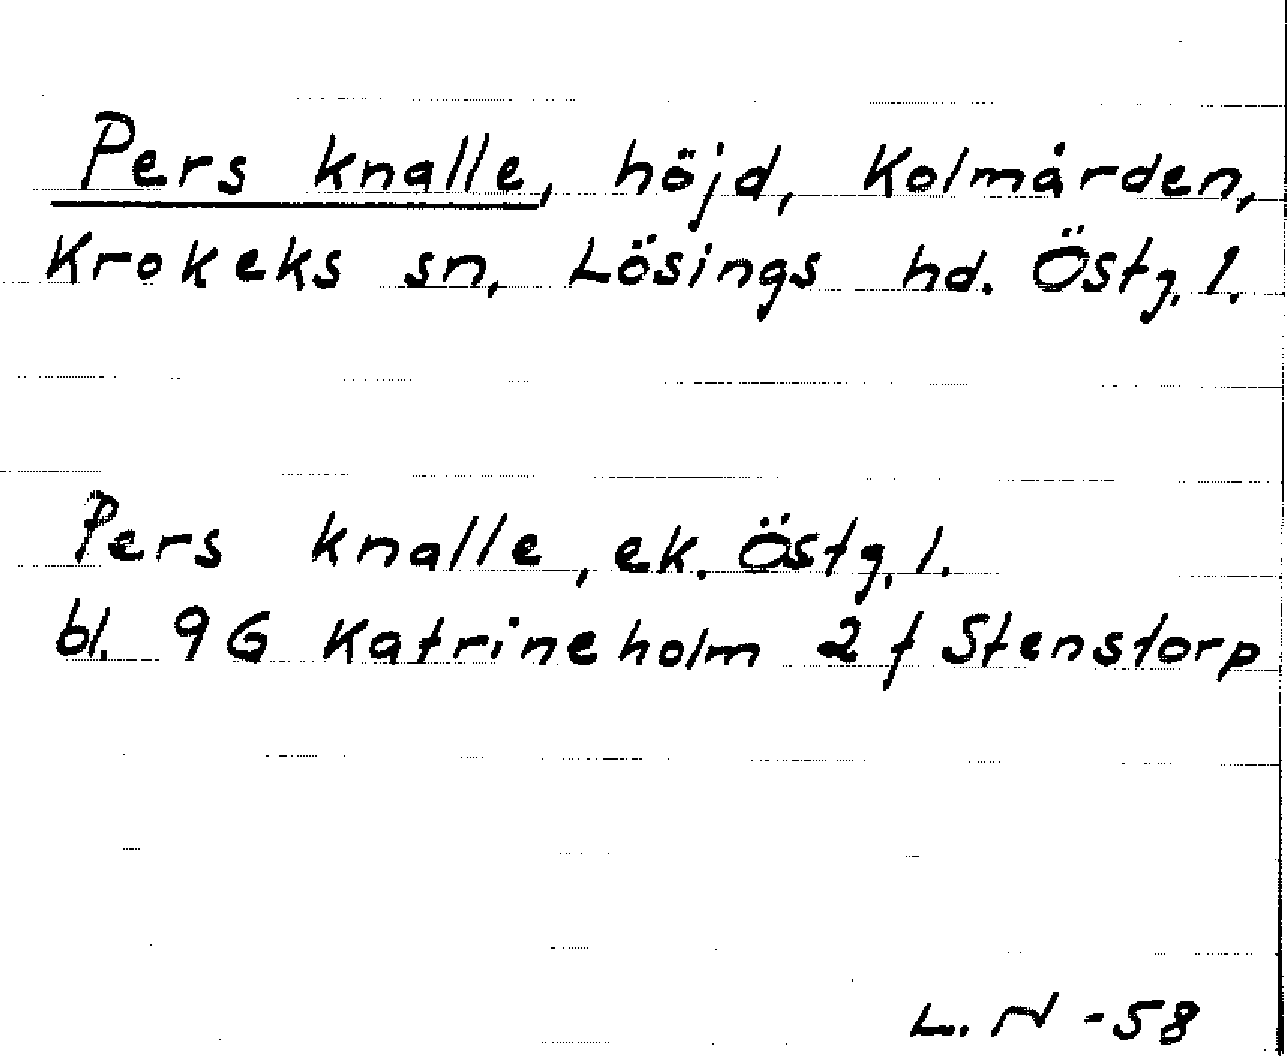 Pers knalle, höjd, Kolmården,
Krokeks sn, Lösings hd. Östg. l.
Pers knalle, ek. Östg. l.
bl. 9G Katrineholm 2 f Stenstorp
L. N -58